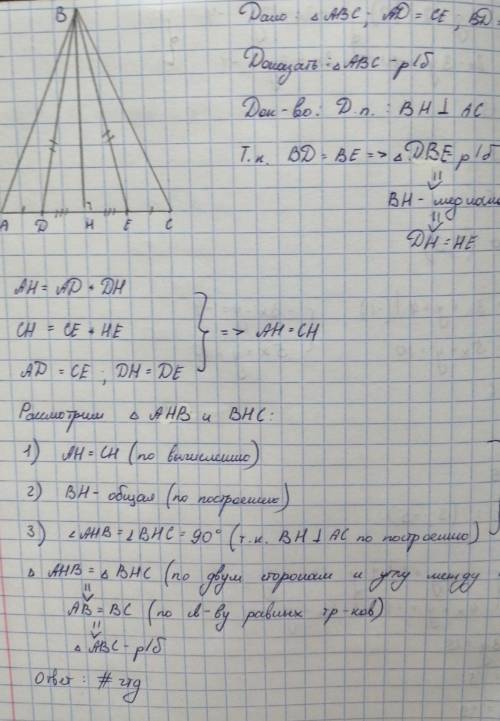 B
A D H E C
Дано: △ABC; AD = CE; BD =
Доказать: △ABC - р/б
Док-во: Д.п.: BH ⊥ AC
Т.к. BD = BE => △DBE р/б
BH - медиана
DH = HE
AH = AD + DH
CH = CE + HE
=> AH = CH
AD = CE; DH = DE
Рассмотрим △ AHB и BHC:
1) AH = CH (по вычислению)
2) BH - общая (по построению)
3) ∠AHB = ∠BHC = 90° (т.к. BH ⊥ AC по построению)
△ AHB = △ BHC (по двум сторонам и углу между
AB = BC (по св-ву равных тр-ков)
△ ABC - р/б
Ответ: # чтд